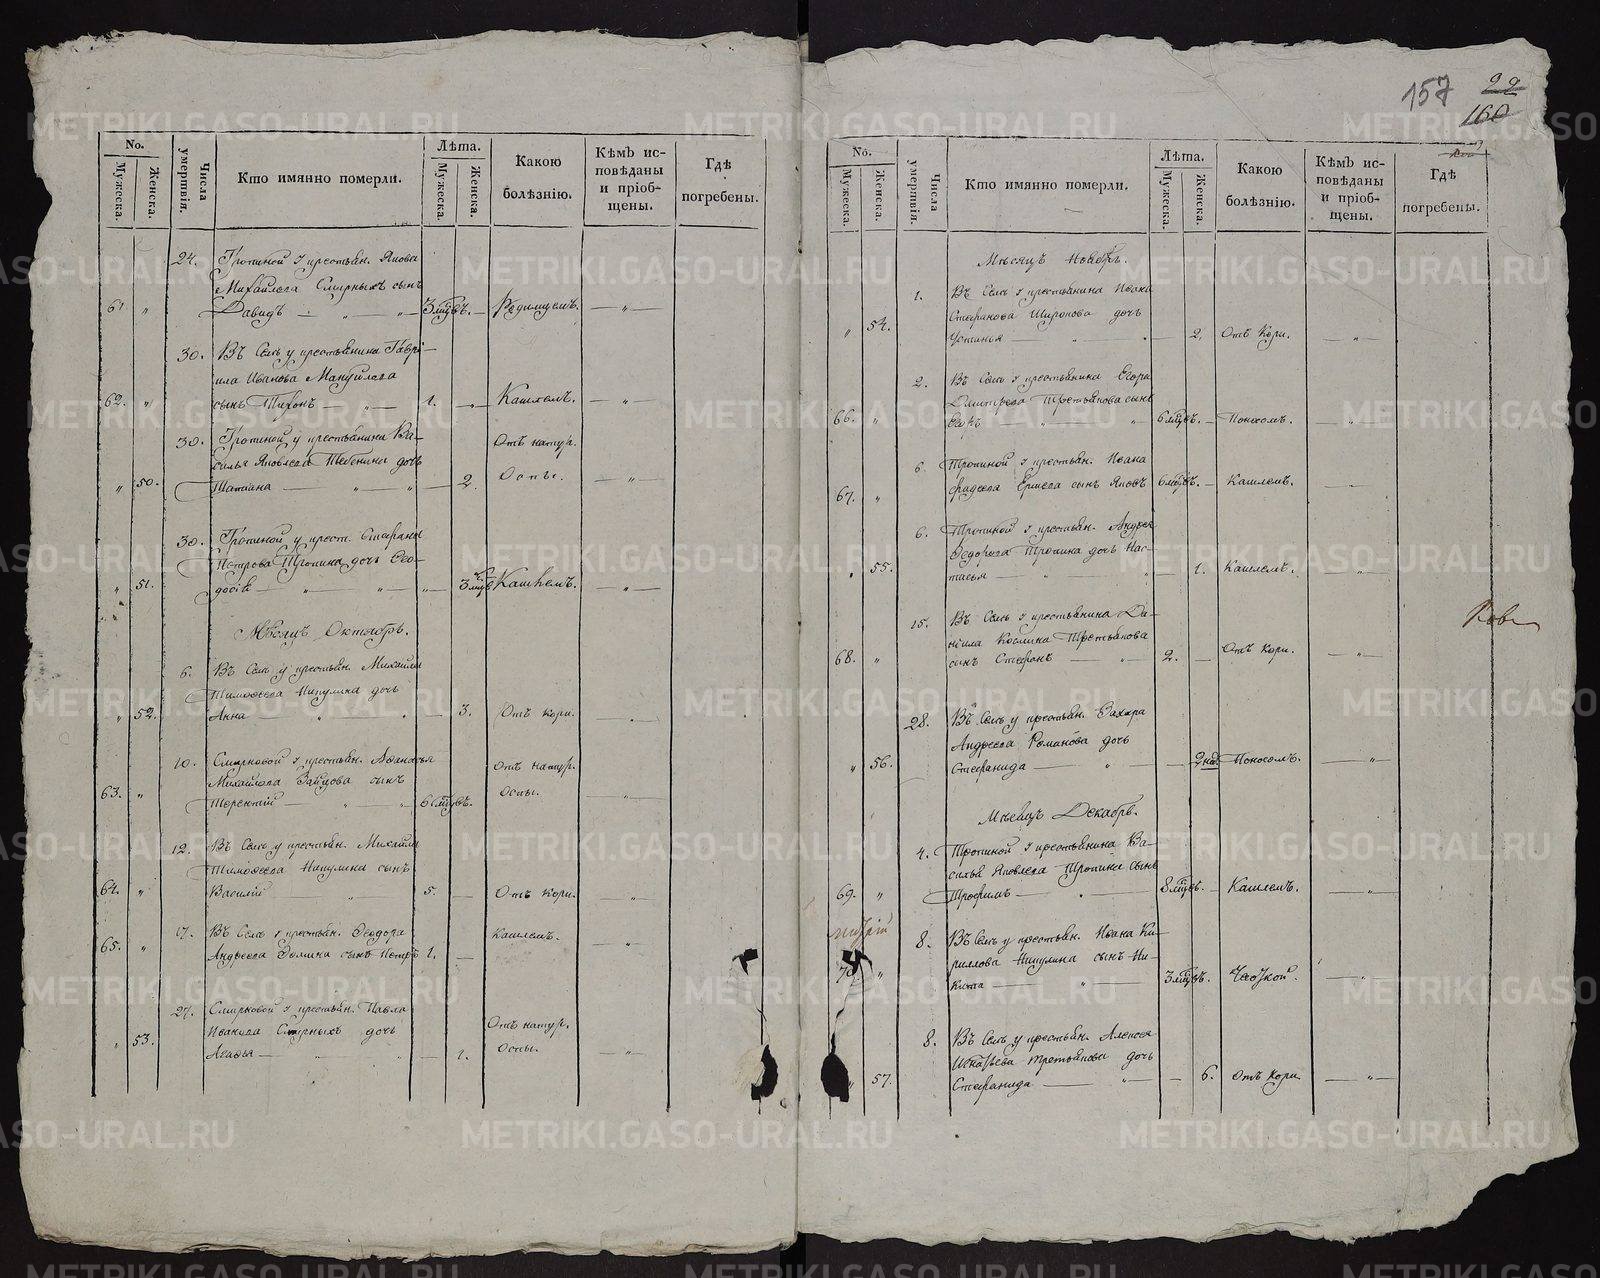 No.
Мужеска.
Женска.
Числа умертвія.
Кто имянно померли.
Лѣта.
Мужеска.
Женска.
Какою
болѣзнію.
Кѣмъ ис-
повѣданы
и пріоб-
щены.
Гдѣ
погребены.
24. Тропиной у крестьян. Якова
Михайлова Смирныхъ сынъ
61. „ Давидъ 3 мцвъ. Родимцемъ.
30. Въ Селѣ у крестьянина Гаврі-
ила Иванова Мануйлова
62. „ сынъ Тихонъ 1. Кашлемъ.
30. Тропиной у крестьянина Ва- Отъ натур.
силья Яковлева дочь
„ 50. Татіана 2. Оспы.
30. Тропиной у крест. Стефана
Петрова Тропина дочь Ѳео-
„ 51. досія 3 Кашлемъ.
Мѣсяцъ Октябрь.
6. Въ Селѣ у крестьян. Михайла
Тимоѳеева Никулина дочь
„ 52. Анна 3. Отъ кори.
10. Смирновой у крестьян. Аѳанасья Отъ натур.
Михайлова Зайцова сынъ
63. „ Терентій 6 мцвъ. Оспы.
12. Въ Селѣ у крестьян. Михайла
Тимоѳеева Никулина сынъ
64. „ Василій 5. Отъ кори.
17. Въ Селѣ у крестьян. Ѳеодора Кашлемъ.
65. „ Андреева сынъ Петръ 1.
27. Смирновой у крестьян. Павла
Иванова Смирныхъ дочь Отъ натур.
„ 53. Агафья 1. Оспы.
157
22
160
No.
Мужеска.
Женска.
Числа умертвія.
Кто имянно померли.
Лѣта.
Мужеска.
Женска.
Какою
болѣзнію.
Кѣмъ ис-
повѣданы
и пріоб-
щены.
Гдѣ
погребены.
Мѣсяцъ Ноябрь.
1. Въ Селѣ у крестьянина Ивана
Стефанова Широкова дочь
„ 54. Устинья 2. Отъ Кори.
2. Въ Селѣ у крестьянина Егора
Димитрева Третьякова сынъ
66. „ 6 мцвъ. Поносомъ.
6. Тропиной у крестьян. Ивана
Фадеева Ершева сынъ Яковъ
67. „ 6 мцвъ. Кашлемъ.
6. Тропиной у крестьян. Андрея
Ѳедорова Тропина дочь Нас-
„ 55. тасья 1. Кашлемъ.
15. Въ Селѣ у крестьянина Да-
ніила Козмина Третьякова
68. „ сынъ Стефанъ 2. Отъ Кори.
28. Въ Селѣ у крестьян. Захара
Андреева Романова дочь
„ 56. Стефанида 2 нед. Поносомъ.
Мѣсяцъ Декабрь.
4. Тропиной у крестьянина Ва-
силья Яковлева Тропина сынъ
69. „ Трофимъ 8 мцвъ. Кашлемъ.
8. Въ Селѣ у крестьян. Ивана Ки-
риллова Никулина сынъ Ни-
70. „ кита 3 мцвъ. Чахоткой.
8. Въ Селѣ у крестьян. Алексея
Игнатьева Третьякова дочь
„ 57. Стефанида 6. Отъ Кори
METRIKI.GASO-URAL.RU